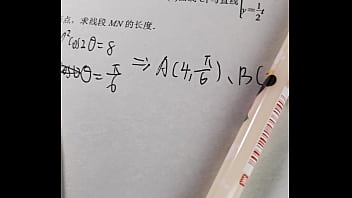 y=1/2t
点，求线段 MN 的长度.
ρ²cos2θ=8
θ=π/6 ⇒ A(4, π/6)、B(